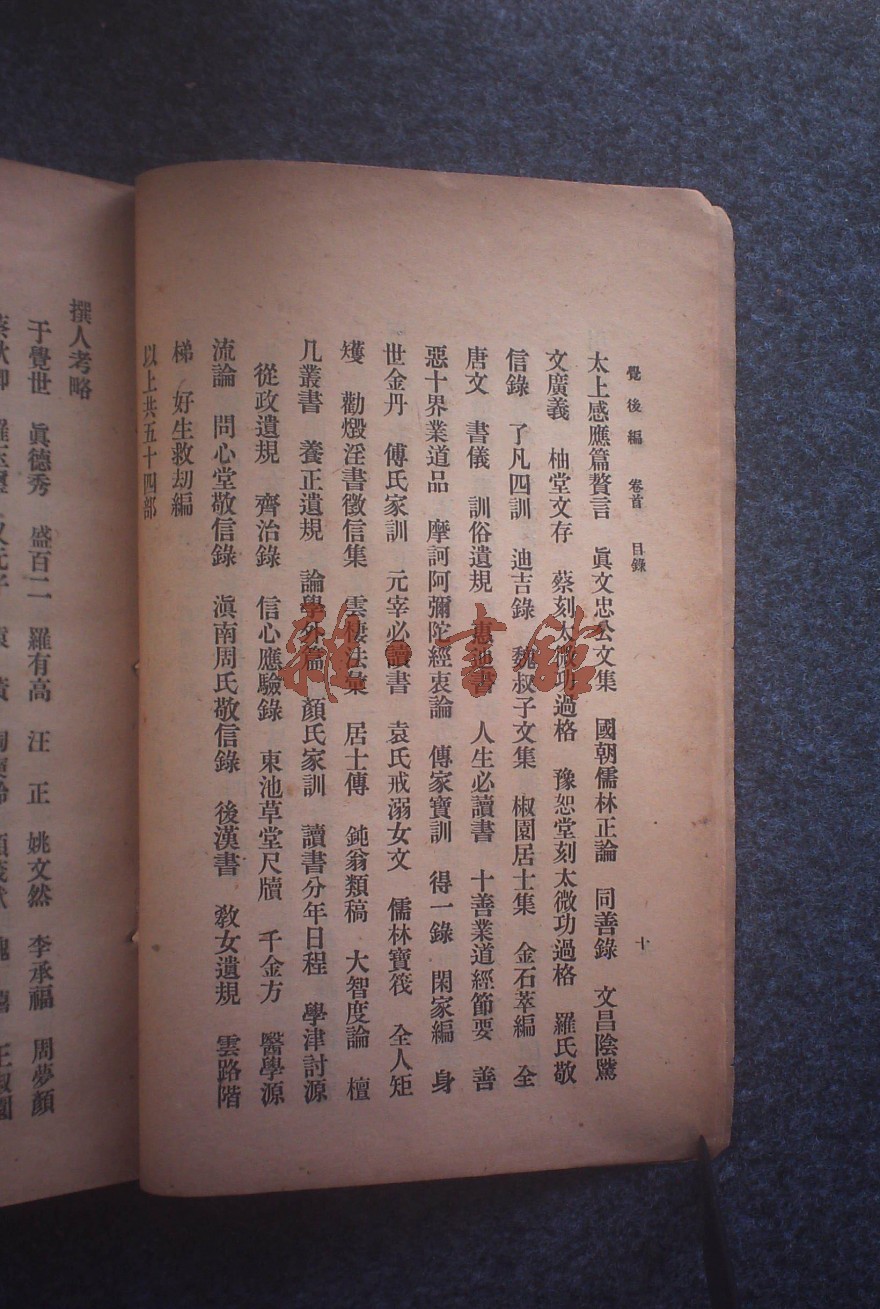 覺後編 卷首 目錄 十
太上感應篇贅言 眞文忠公文集 國朝儒林正論 同善錄 文昌陰騭
文廣義 柚堂文存 蔡刻太微功過格 豫恕堂刻太微功過格 羅氏敬
信錄 了凡四訓 迪吉錄 魏叔子文集 椒園居士集 金石萃編 全
唐文 書儀 訓俗遺規 惠迪書 人生必讀書 十善業道經節要 善
惡十界業道品 摩訶阿彌陀經衷論 傳家寶訓 得一錄 閑家編 身
世金丹 傅氏家訓 元宰必讀書 袁氏戒溺女文 儒林寶筏 全人矩
矱 勸燬淫書徵信集 雲棲法彙 居士傳 鈍翁類稿 大智度論 檀
几叢書 養正遺規 論學外篇 顏氏家訓 讀書分年日程 學津討源
從政遺規 齊治錄 信心應驗錄 東池草堂尺牘 千金方 醫學源
流論 問心堂敬信錄 滇南周氏敬信錄 後漢書 敎女遺規 雲路階
梯 好生救劫編
以上共五十四部
撰人考略
于覺世 眞德秀 盛百二 羅有高 汪正 姚文然 李承福 周夢顏
雜·書館